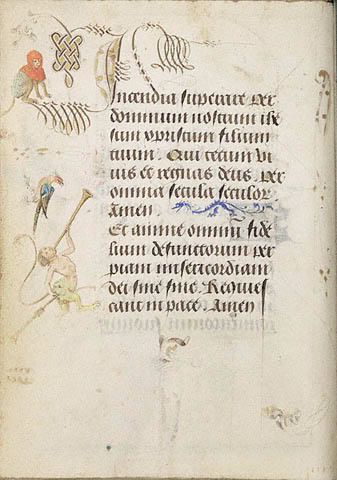 Incendia superare per
dominum nostrum ihe
sum xpistum filium
tuum. Qui tecum vi
uis et regnas deus per
omnia secula seculor
Amen
Et anime omnium fide
lium defunctorum per
piam misericordiam
dei sine fine. Requies
cant in pace. Amen